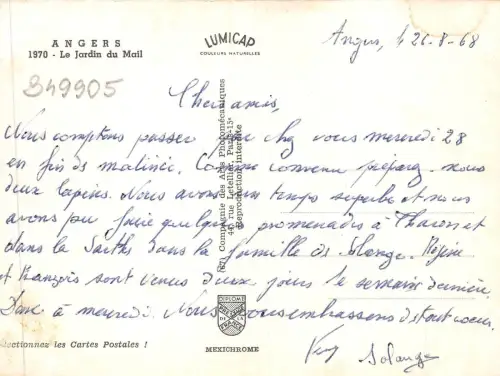 ANGERS
1970 - Le Jardin du Mail
LUMICAP
COULEURS NATURELLES
Angers, le 26-8-68
849905
Chers amis,
Nous comptons passer chez vous mercredi 28
en fin de matinée. Comme convenu préparez-nous
deux lapins. Nous avons un temps superbe et nous
avons pu faire quelques promenades à
dans la Sarthe dans la famille de Solange.
et sont venus deux jours la semaine dernière.
Donc à mercredi. Nous vous embrassons de tout coeur.
Solange
Compagnie des Arts Photomécaniques
44, rue Letellier, Paris-15e
Reproduction interdite
DIPLOME
MEXICHROME
lectionnez les Cartes Postales !